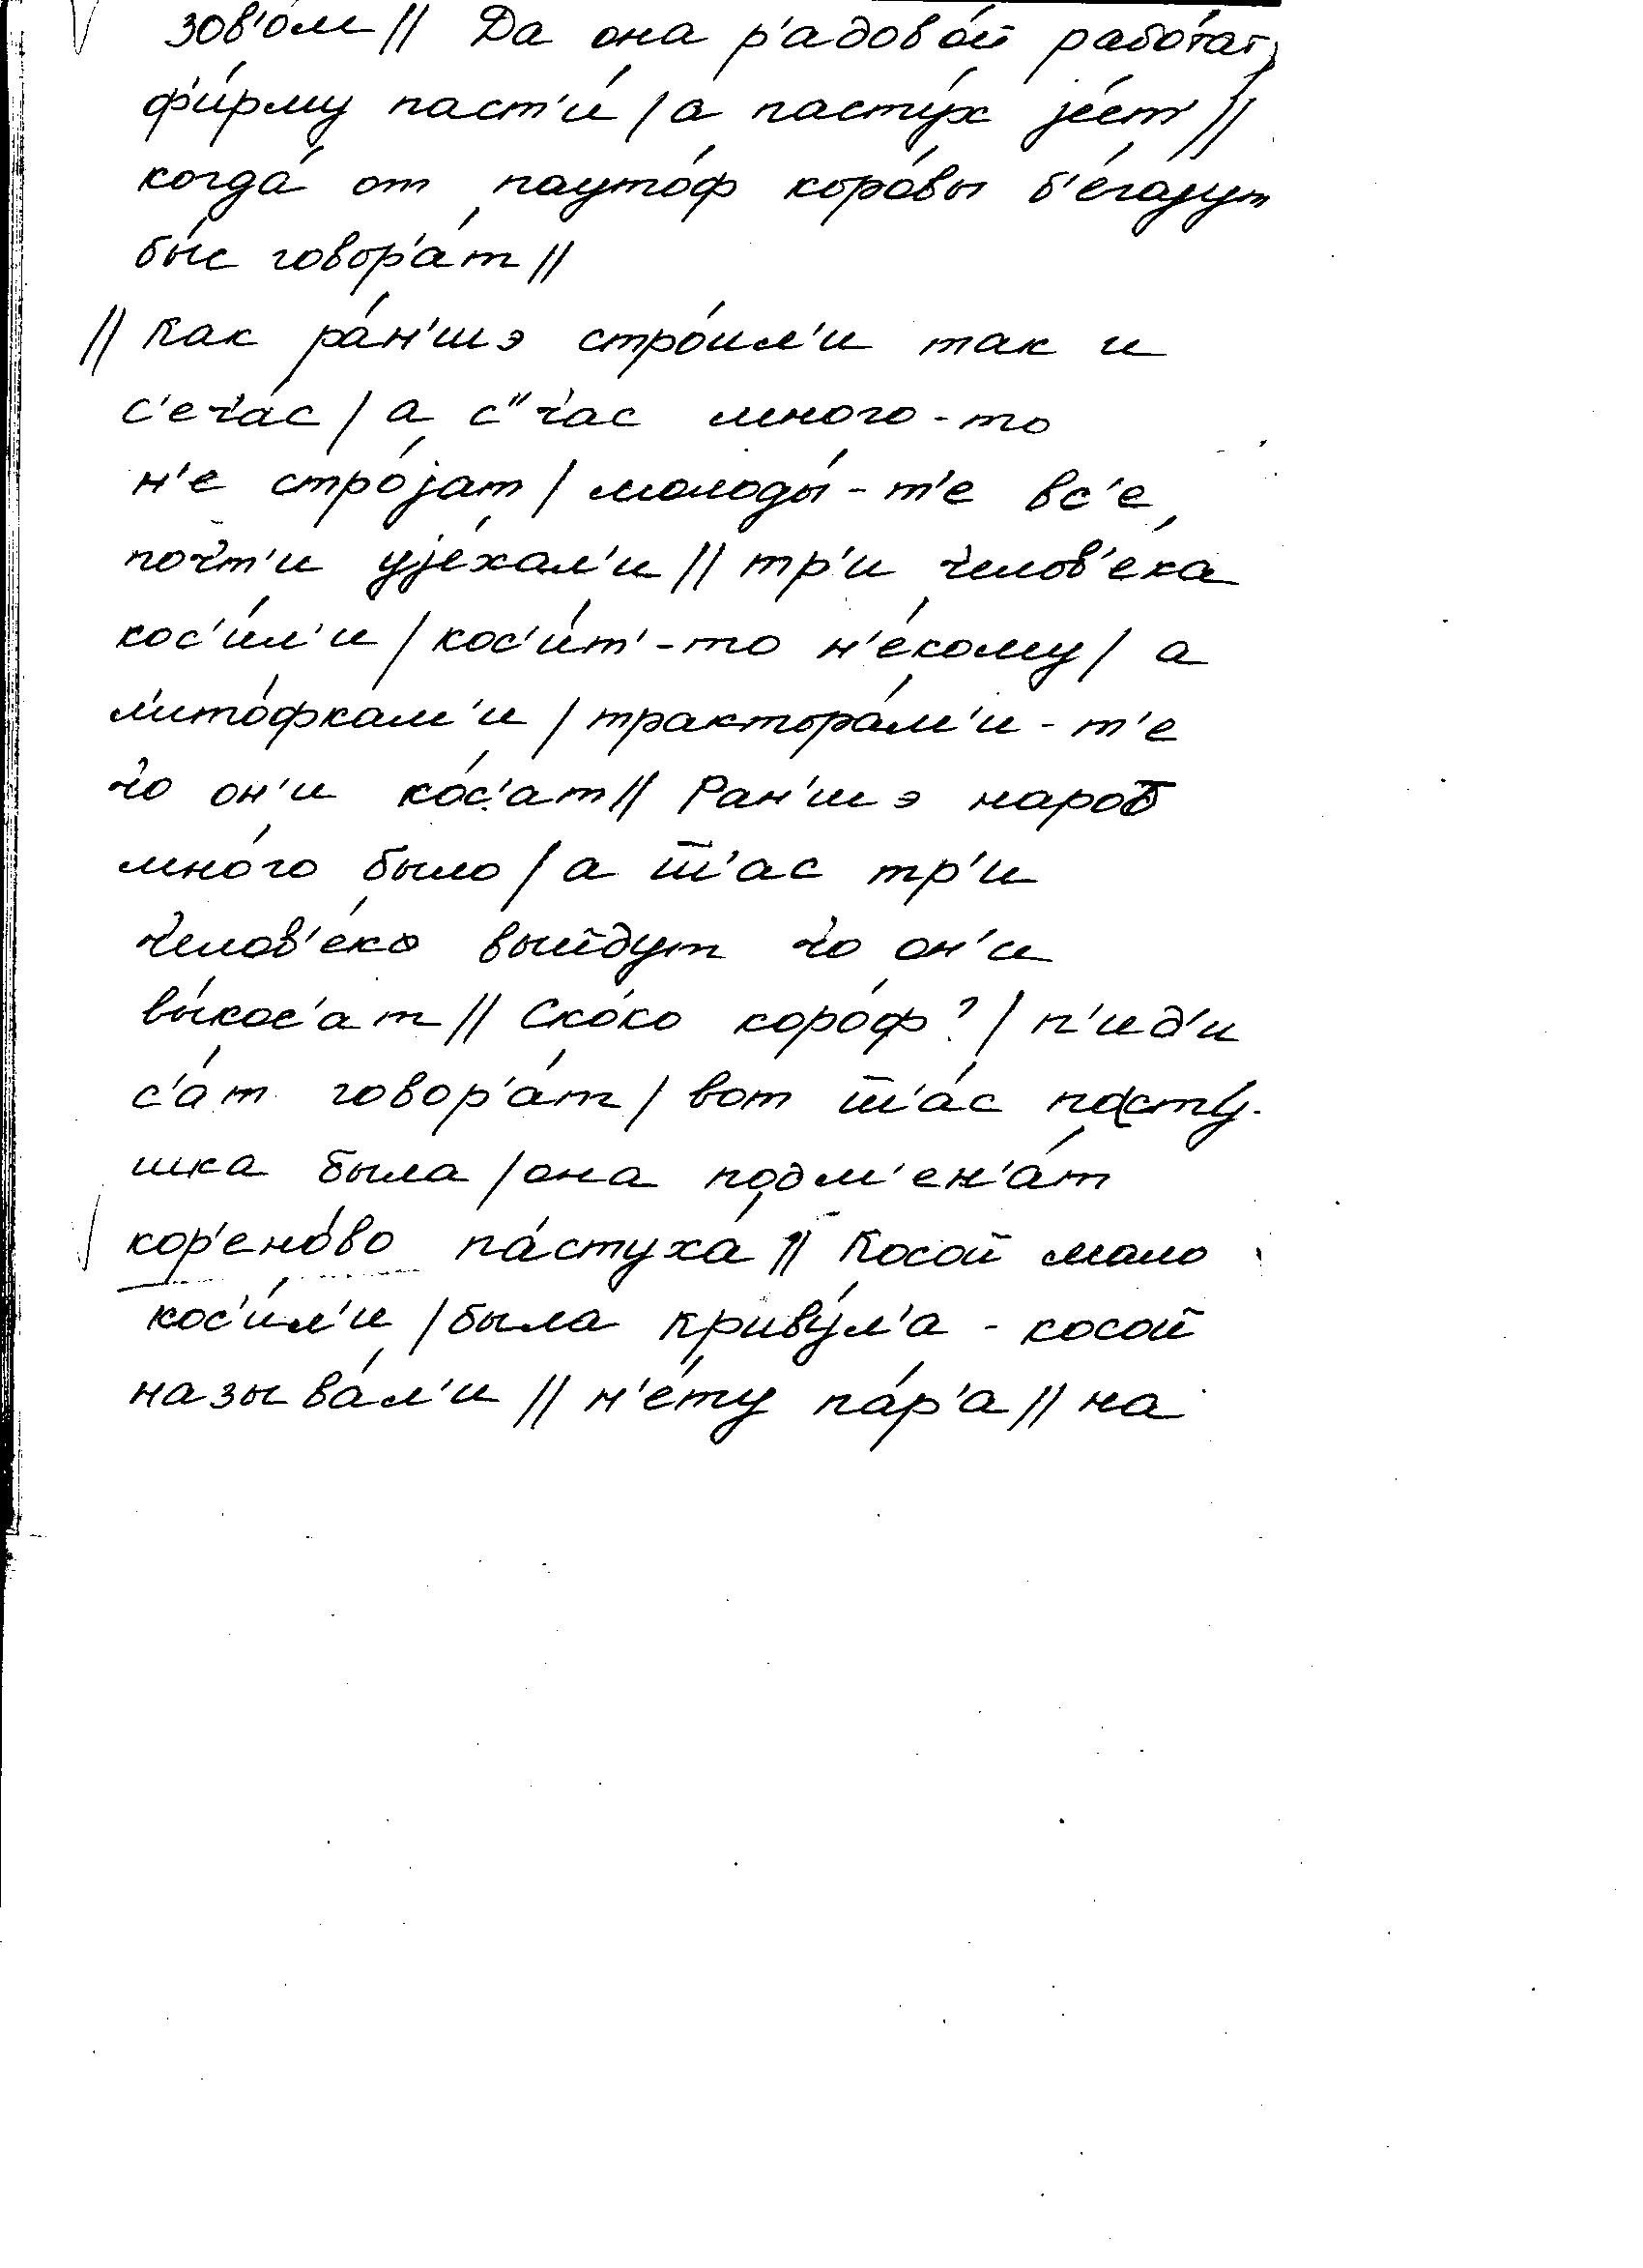 зов'о́м // Да она р'адово́й рабо́тат,
ф'и́рму паст'и́ / а пасту́х је́ст' //
когда́ от пауто́ф коро́вы б'е́гајут
бы́с говор'а́т //
// Как ра́н'шэ стро́ил'и так и
с'еч'а́с / а с"ч'ас много-то
н'е стро́јат / молоды́-т'е вс'е
почт'и ује́хал'и // тр'и ч'елов'е́ка
кос'и́л'и / кос'и́т'-то н'е́кому / а
л'ито́фкам'и / трактора́м'и-т'е
ч'о он'и ко́с'ат // Ран'шэ народ
мно́го было / а ш'ас тр'и
ч'елов'е́ка выйдут ч'о он'и
вы́кос'ат // Ско́ко коро́ф? / п'ид'и
с'а́т говор'а́т / вот ш'а́с пасту́-
шка была / она подм'ен'а́т
кор'ено́во па́стуха́ // Косой мало
кос'и́л'и / была криву́л'а - косой
называ́л'и // н'е́ту па́р'а // на